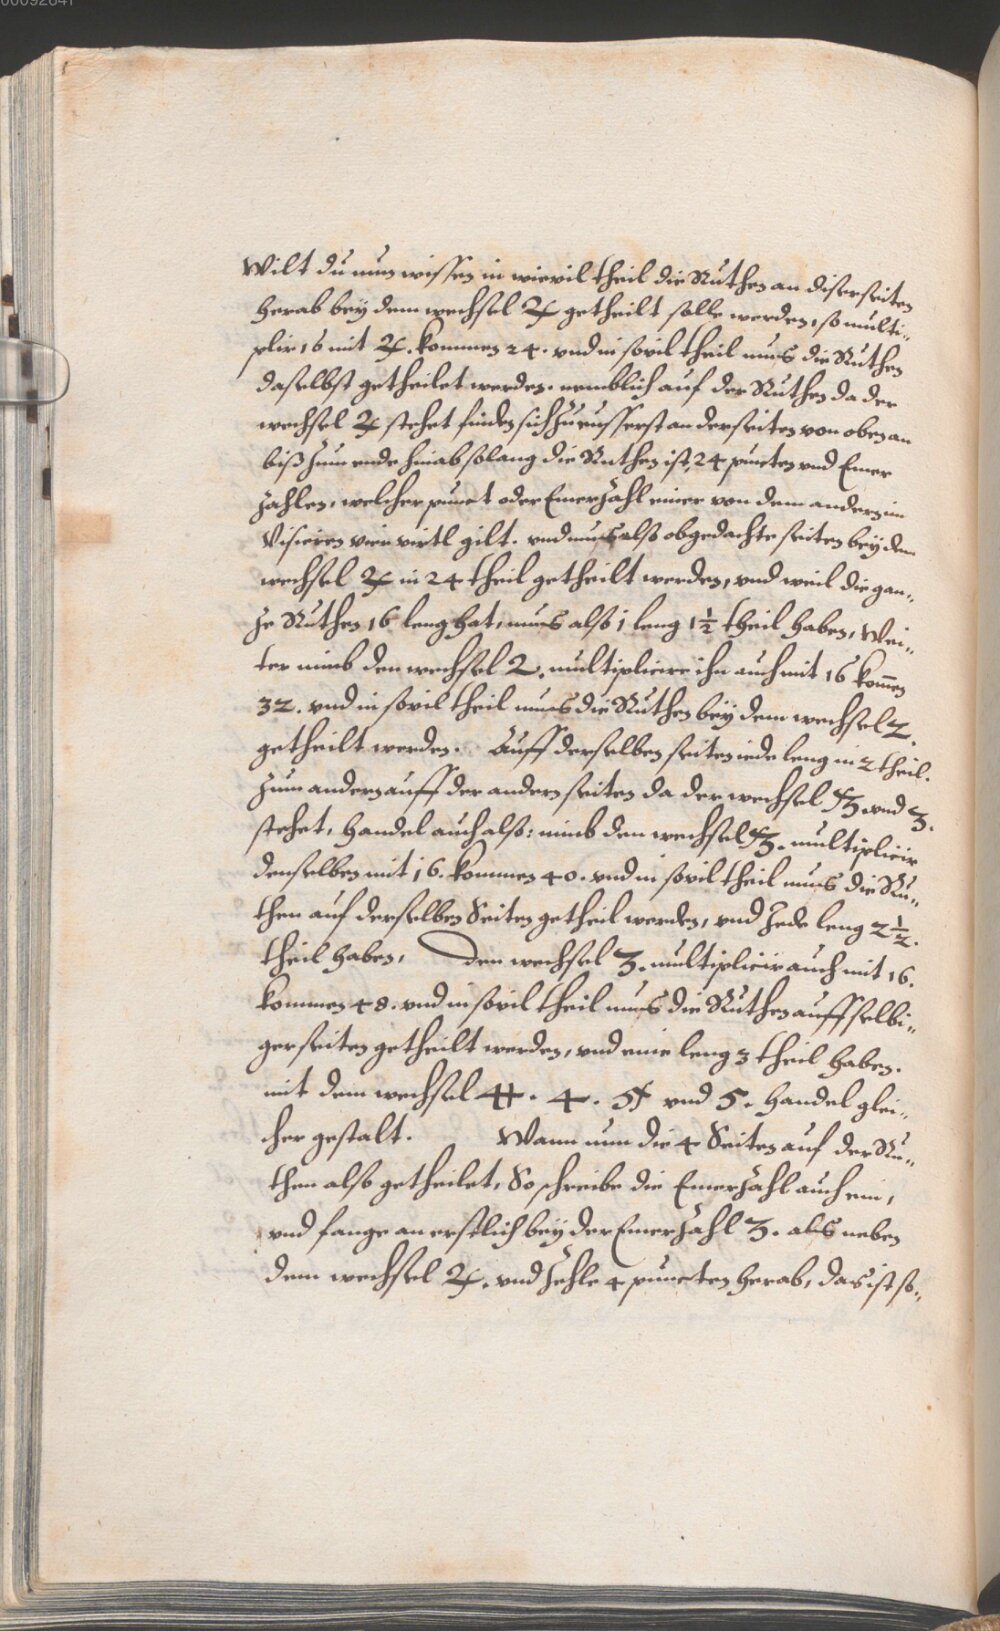 00092641
Wilt du nun wissen in wievil theil die Ruthen an diser seiten
herab bey dem wechsel 2̸ getheilt solle werden, so multi„
plir 16 mit 2̸. kommen 24. vnd in sovil theil mus die Ruthen
daselbst getheilet werden. nemblich auf der Ruthen da der
wechsel 2̸ stehet finden sich zu eusserst an der seiten von oben an
biß zum ende hinab solang die Ruthen ist, 24 puncten vnd Emer
zahlen, welcher punct oder Emerzahl einer von dem andern im
Visieren vier virtl gilt. vnd mus also obgedachte seiten bey dem
wechsel 2̸ in 24 theil getheilt werden, vnd weil die gan„
ze Ruthen 16 leng hat, mus also 1 leng 1½ theil haben, Wei„
ter nimb den wechsel 2. multiplicire ihn auch mit 16 kom̄en
32. vnd in sovil theil mus die Ruthen bey dem wechsel 2.
getheilt werden. Auff derselben seiten iede leng in 2 theil.
Zum andern auff der andern seiten da der wechsel 3̸ vnd 3.
stehet, handel auch also: nimb den wechsel 3̸. multiplicir
denselben mit 16. kommen 40. vnd in sovil theil mus die Ru„
then auf derselben Seiten getheil werden, vnd Jede leng 2½.
theil haben, Den wechsel 3. multiplicir auch mit 16.
kommen 48. vnd in sovil theil mus die Ruthen auff selbi„
ger seiten getheilt werden, vnd eine leng 3 theil haben.
mit dem wechsel 4̸. 4. 5̸ vnd 5. handel glei„
cher gestalt. Wann nun die 4 Seiten auf der Ru„
then also getheilet, So schreibe die Emerzahl auch ein,
vnd fange an erstlich bey der Emerzahl 3. als neben
dem wechsel 2̸. vnd zehle 4 puncten herab, das ist so„